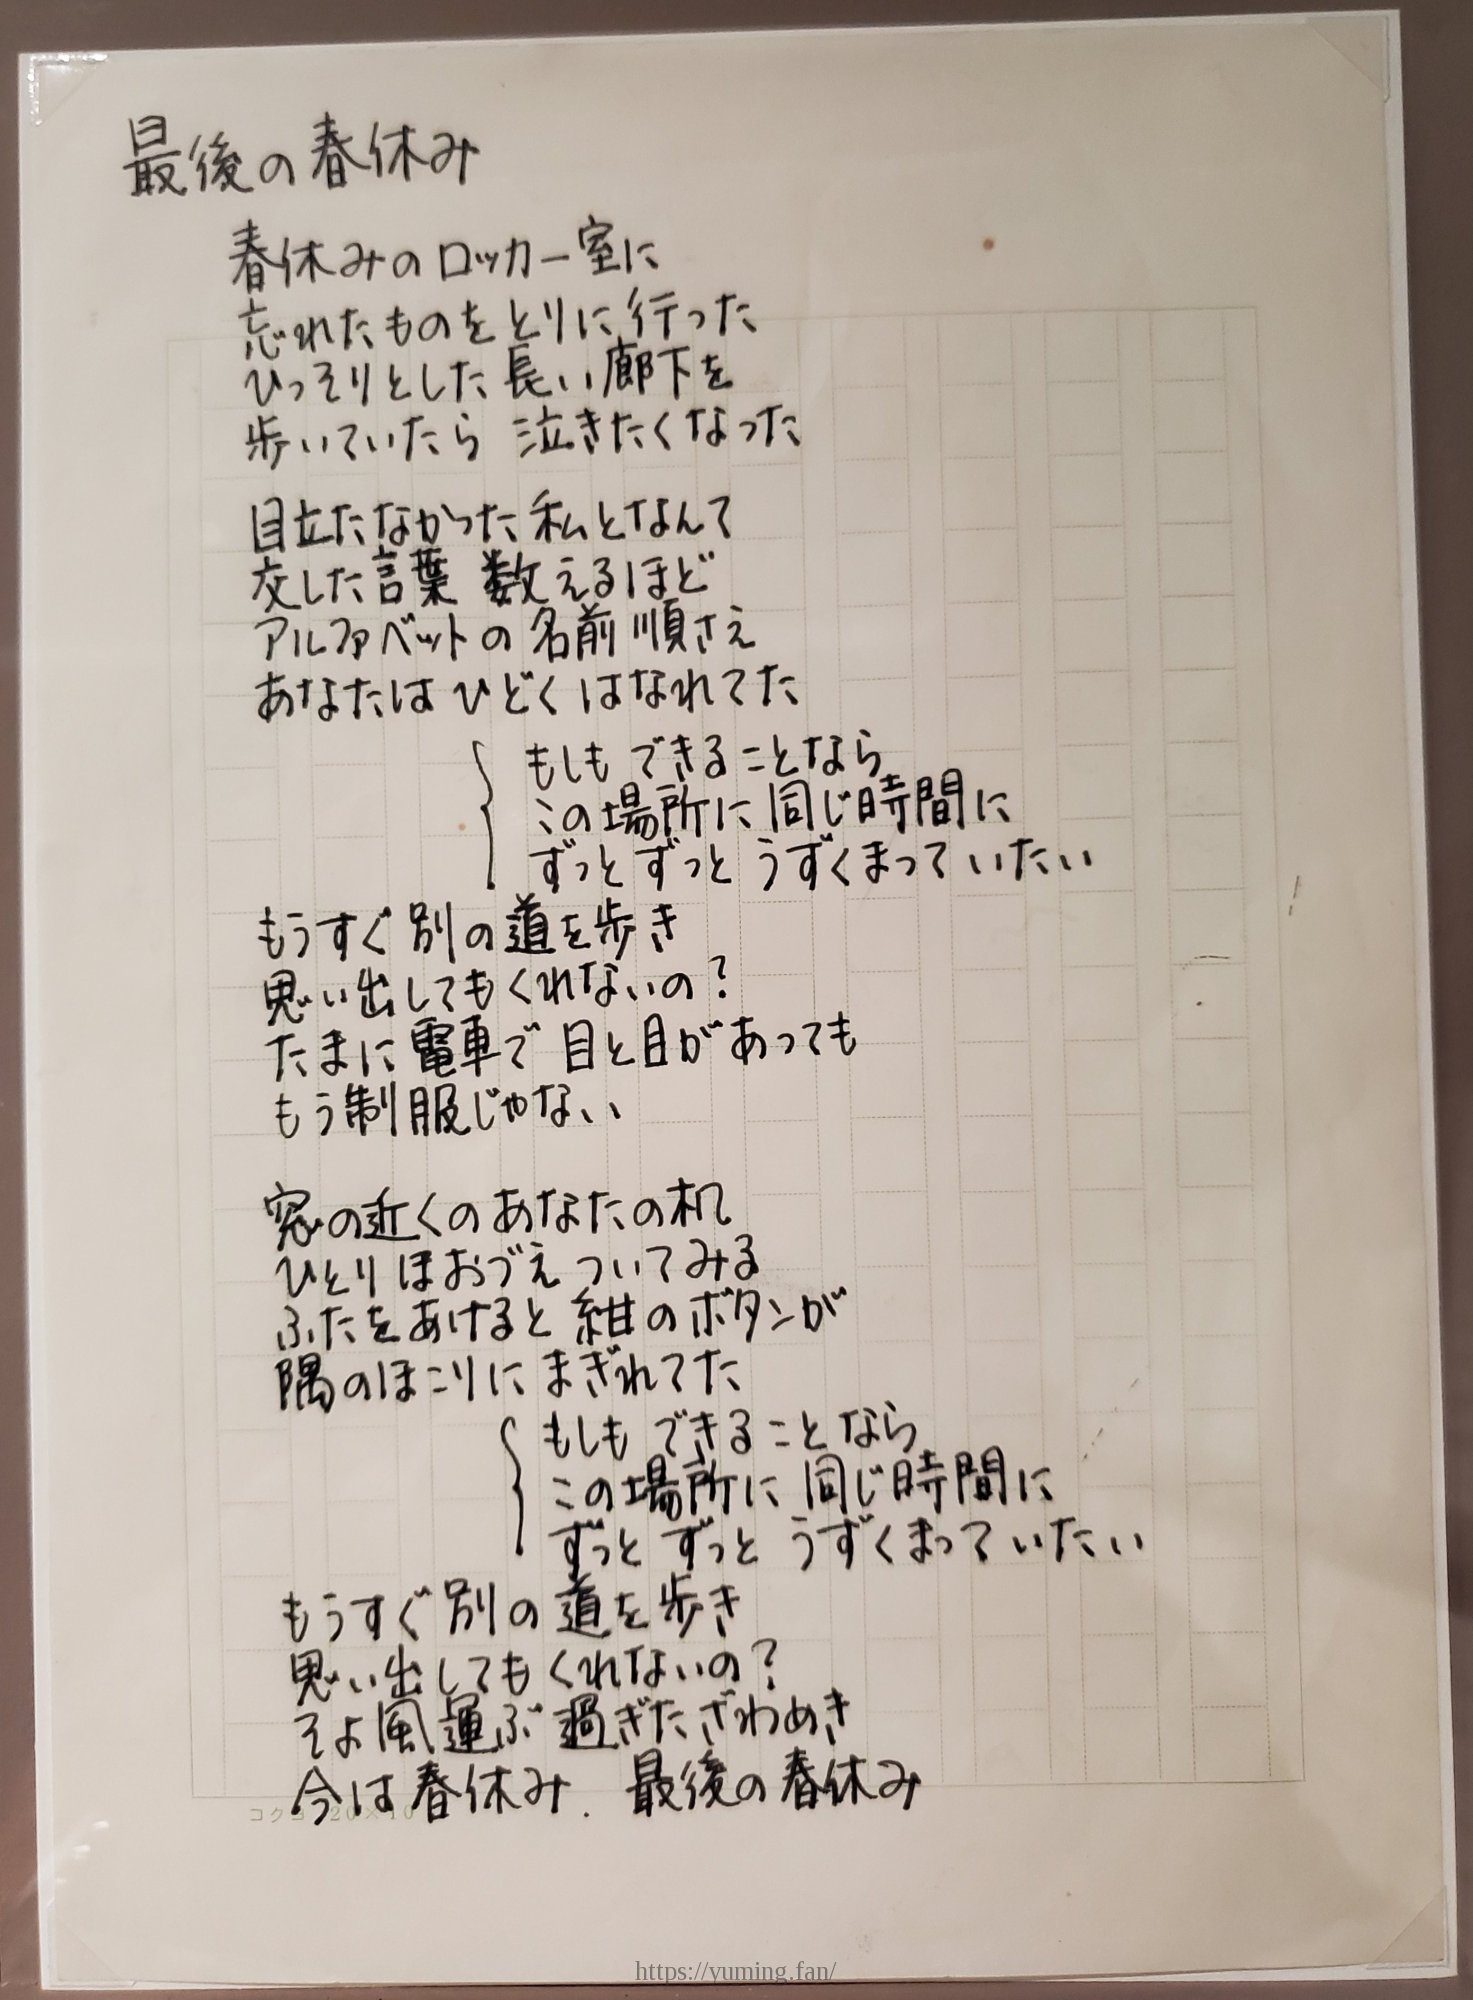 最後の春休み
春休みのロッカー室に
忘れたものをとりに行った
ひっそりとした長い廊下を
歩いていたら 泣きたくなった
目立たなかった私となんて
交した言葉 数えるほど
アルファベットの名前順さえ
あなたはひどくはなれてた
もしも できることなら
この場所に同じ時間に
ずっとずっと うずくまっていたい
もうすぐ別の道を歩き
思い出してもくれないの?
たまに電車で 目と目があっても
もう制服じゃない
窓の近くのあなたの机
ひとりほおづえついてみる
ふたをあけると 紺のボタンが
隅のほこりに まぎれてた
もしも できることなら
この場所に 同じ時間に
ずっと ずっと うずくまっていたい
もうすぐ別の道を歩き
思い出してもくれないの?
そよ風運ぶ 過ぎたざわめき
今は春休み. 最後の春休み
コクヨ 20×10
https://yuming.fan/